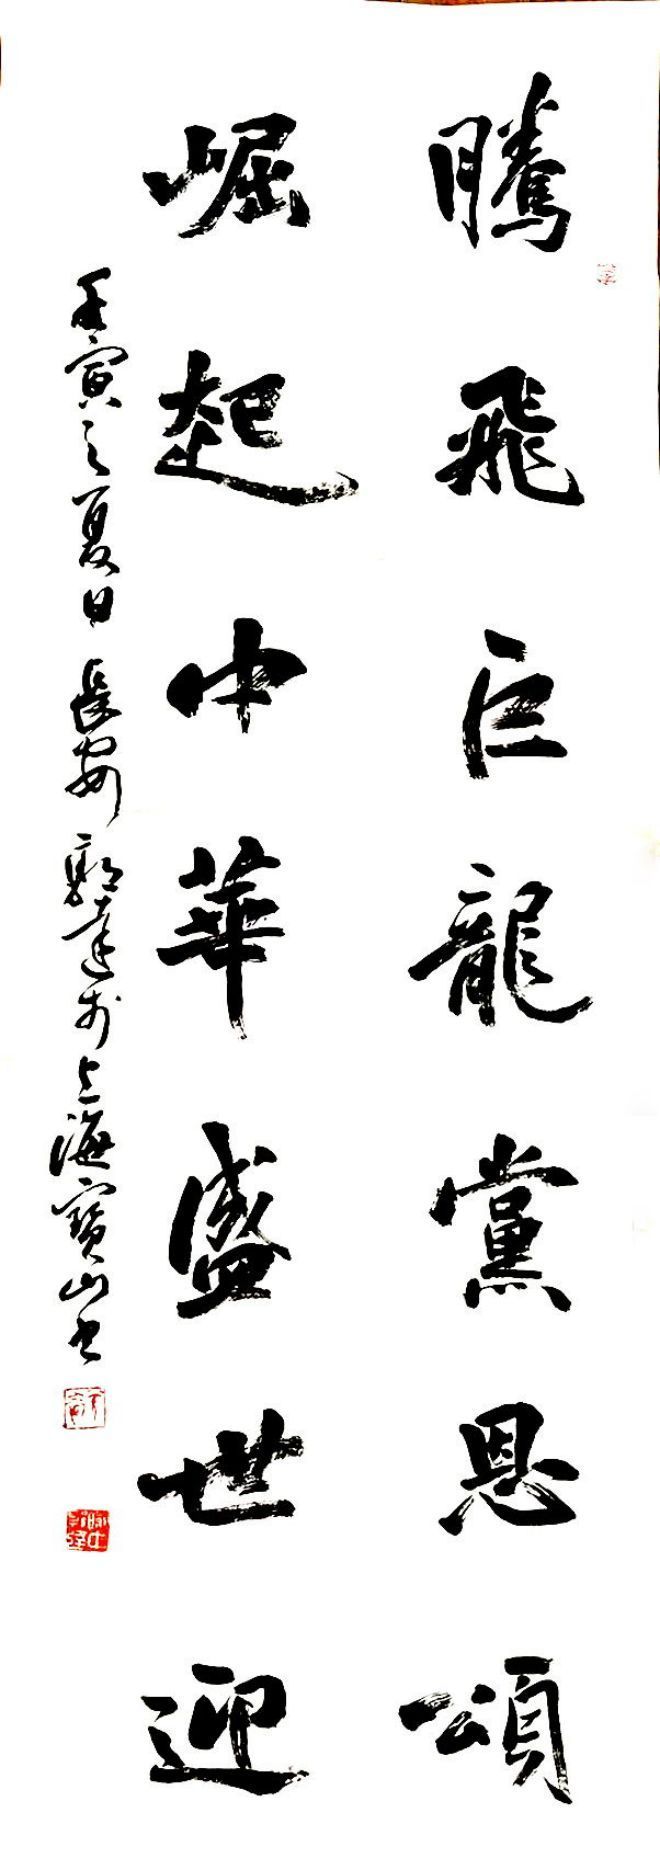 騰飛巨龍黨恩頌
崛起中華盛世迎
壬寅之夏日長安郭達於上海寶山書